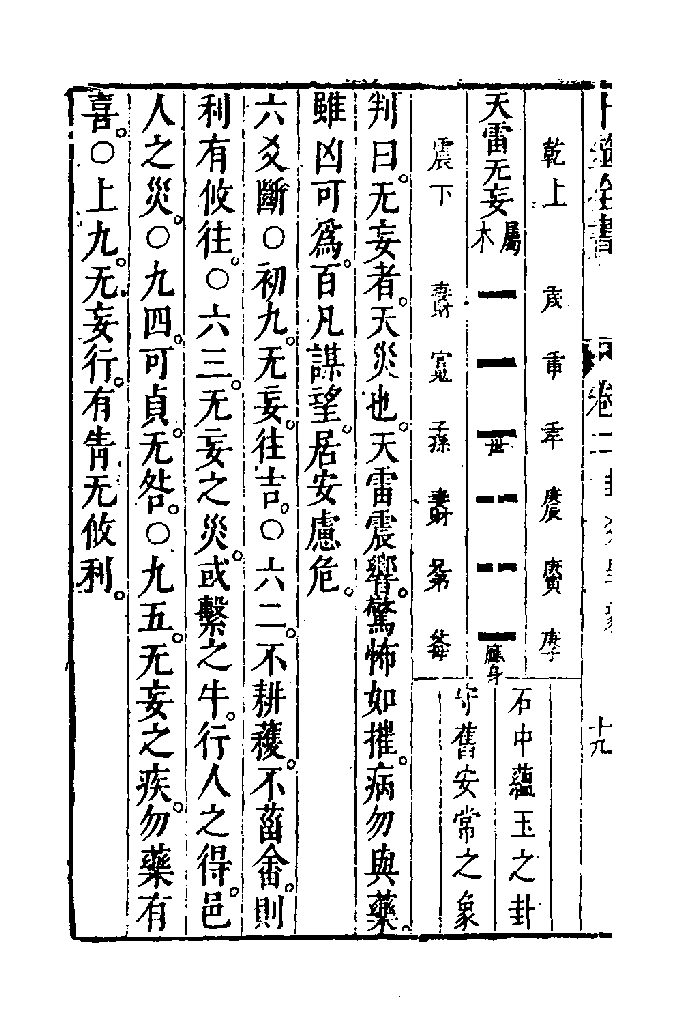 卷二
十九
乾上
庚辰
庚寅
庚子
石中蘊玉之卦
天雷无妄屬木
世
應身
守舊安常之象
震下
妻財
官鬼
子孫
妻財
兄弟
父母
判曰。无妄者。天災也。天雷震響。驚怖如摧。病勿與藥。
雖凶可爲。百凡謀望。居安慮危。
六爻斷○初九。无妄。往吉。○六二。不耕穫。不菑畬。則
利有攸往。○六三。无妄之災。或繫之牛。行人之得。邑
人之災。○九四。可貞。无咎。○九五。无妄之疾。勿藥有
喜。○上九。无妄行。有眚无攸利。